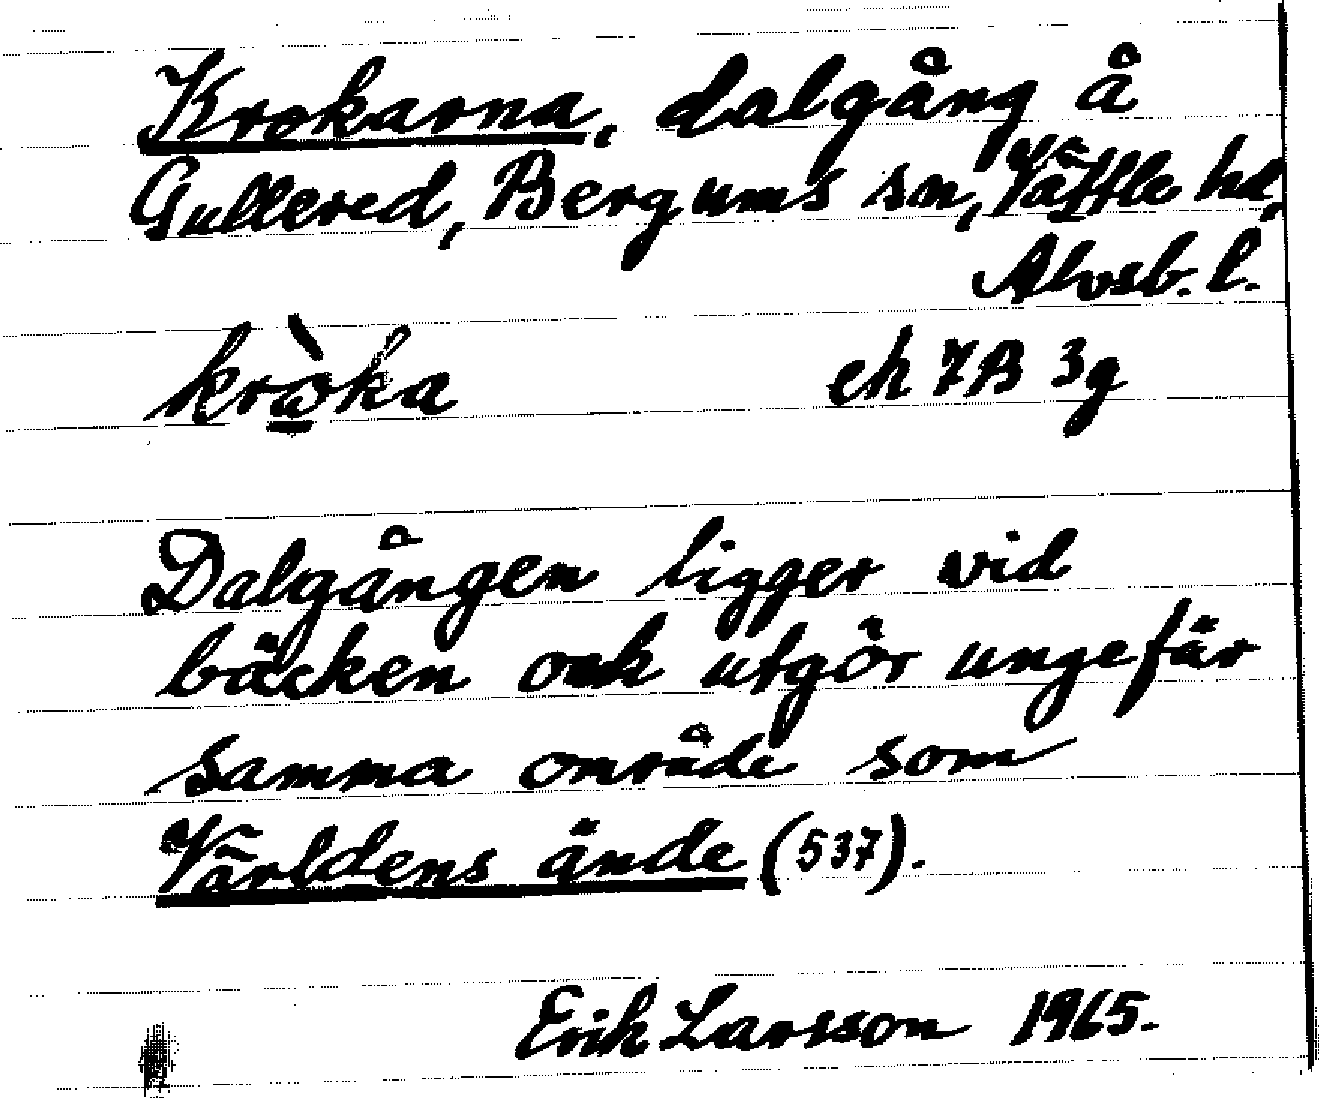 Krokarna, dalgång å
Gullered, Bergums sn, Vättle hd,
Älvsb. l.
kròka ek 7B 3g
Dalgången ligger vid
bäcken och utgör ungefär
samma område som
Världens ände (537).
Erik Larsson 1965.